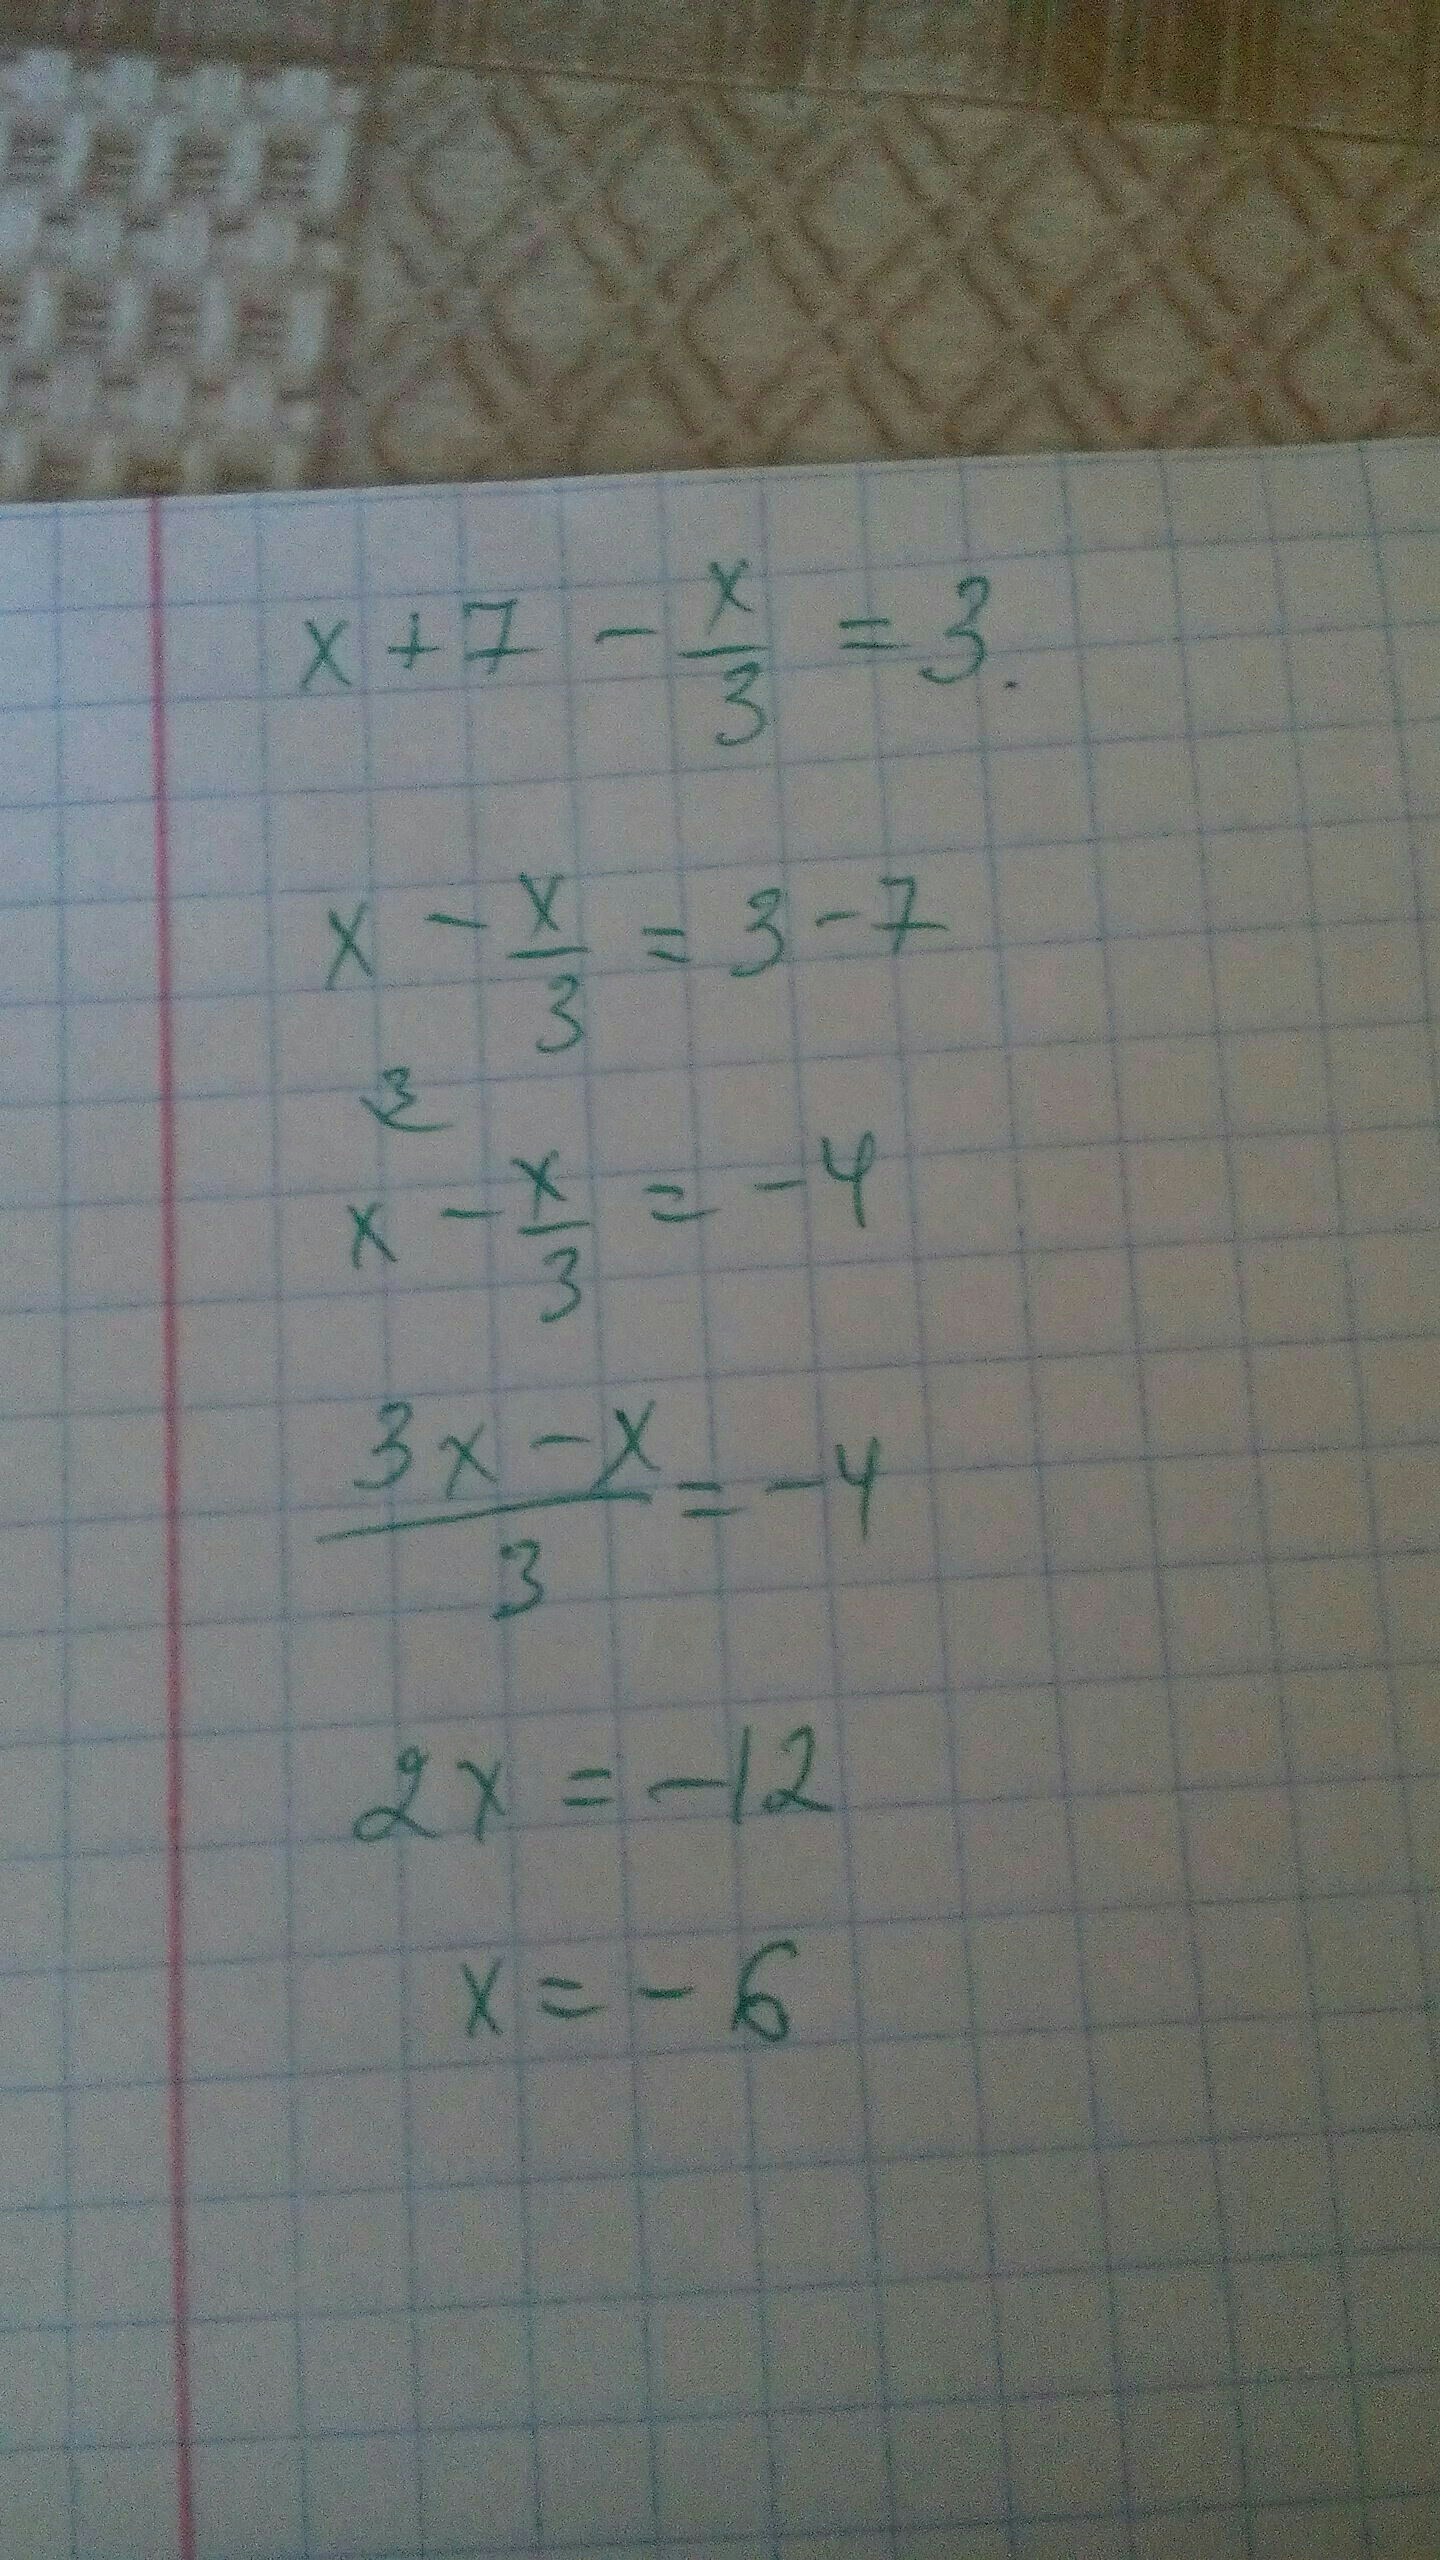 x + 7 - x/3 = 3.
x - x/3 = 3 - 7
3
x - x/3 = -4
(3x - x)/3 = -4
2x = -12
x = -6